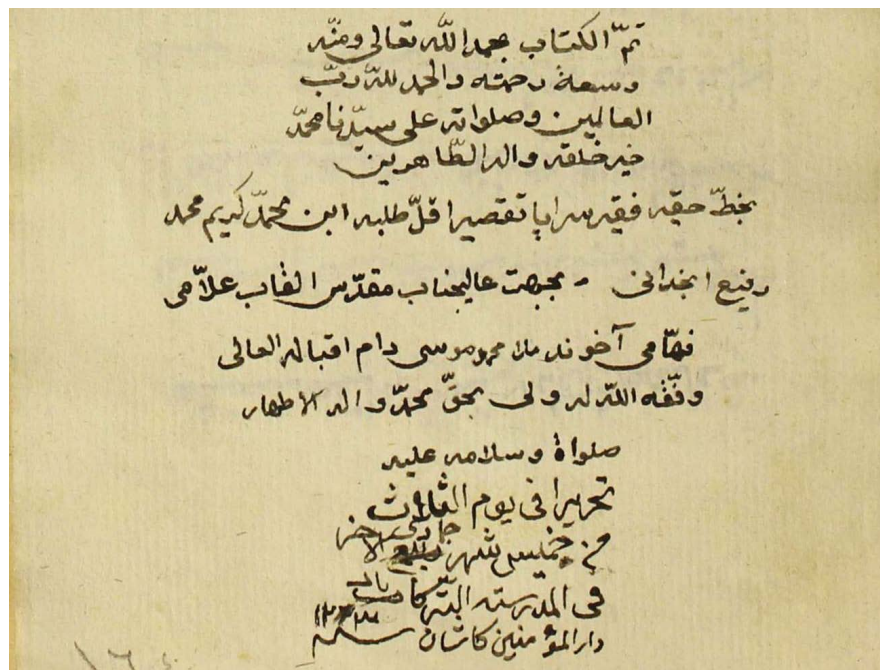 تمّ الكتاب بحمد اللّه تعالى ومنّه
وسعة رحمته والحمد للّه ربّ
العالمين وصلواته على سيّدنا محمّد
خير خلقه واله الطّاهرين
بخطّ حقير فقير سراپا تقصير اقلّ طلبه ابن محمّد كريم محمد
رفيع انجدانى - بجهت عاليجناب مقدّس القاب علاّمى
فهّامى آخوند ملا محمد موسى دام اقباله العالى
وفّقه اللّه له ولى بحقّ محمّد واله الاطهار
صلواة وسلامه عليه
تحريرا فى يوم الثلاث
من خميس شهر جمادى الاخر
فى المدرسته
دار المؤمنين كاشان سنه